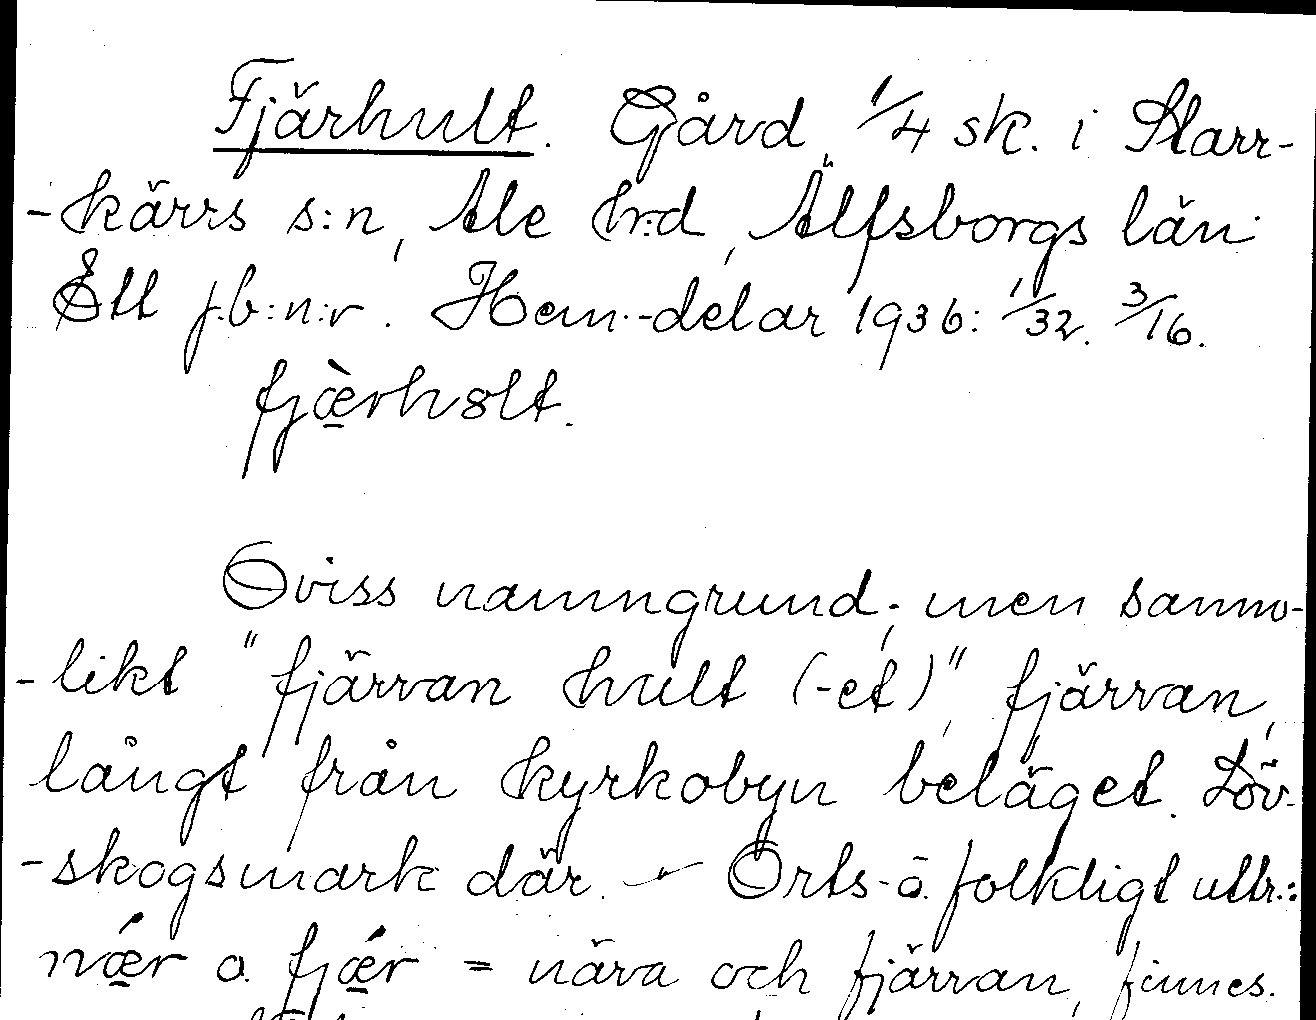 Fjärhult. Gård, 1/4 sk. i Starr-
-kärrs s:n, Ale hrd, Älfsborgs län.
Ett j.b:n:r. Hem.-delar 1936: 1/32. 3/16.
fjæ̀rhult.
Oviss namngrund; men sanno-
-likt "fjärran hult (-et)", fjärran,
långt från kyrkobyn beläget. Löv-
-skogsmark där. - Orts- o. folkligt uttr.:
nǽr o. fjǽr = nära och fjärran, finnes.